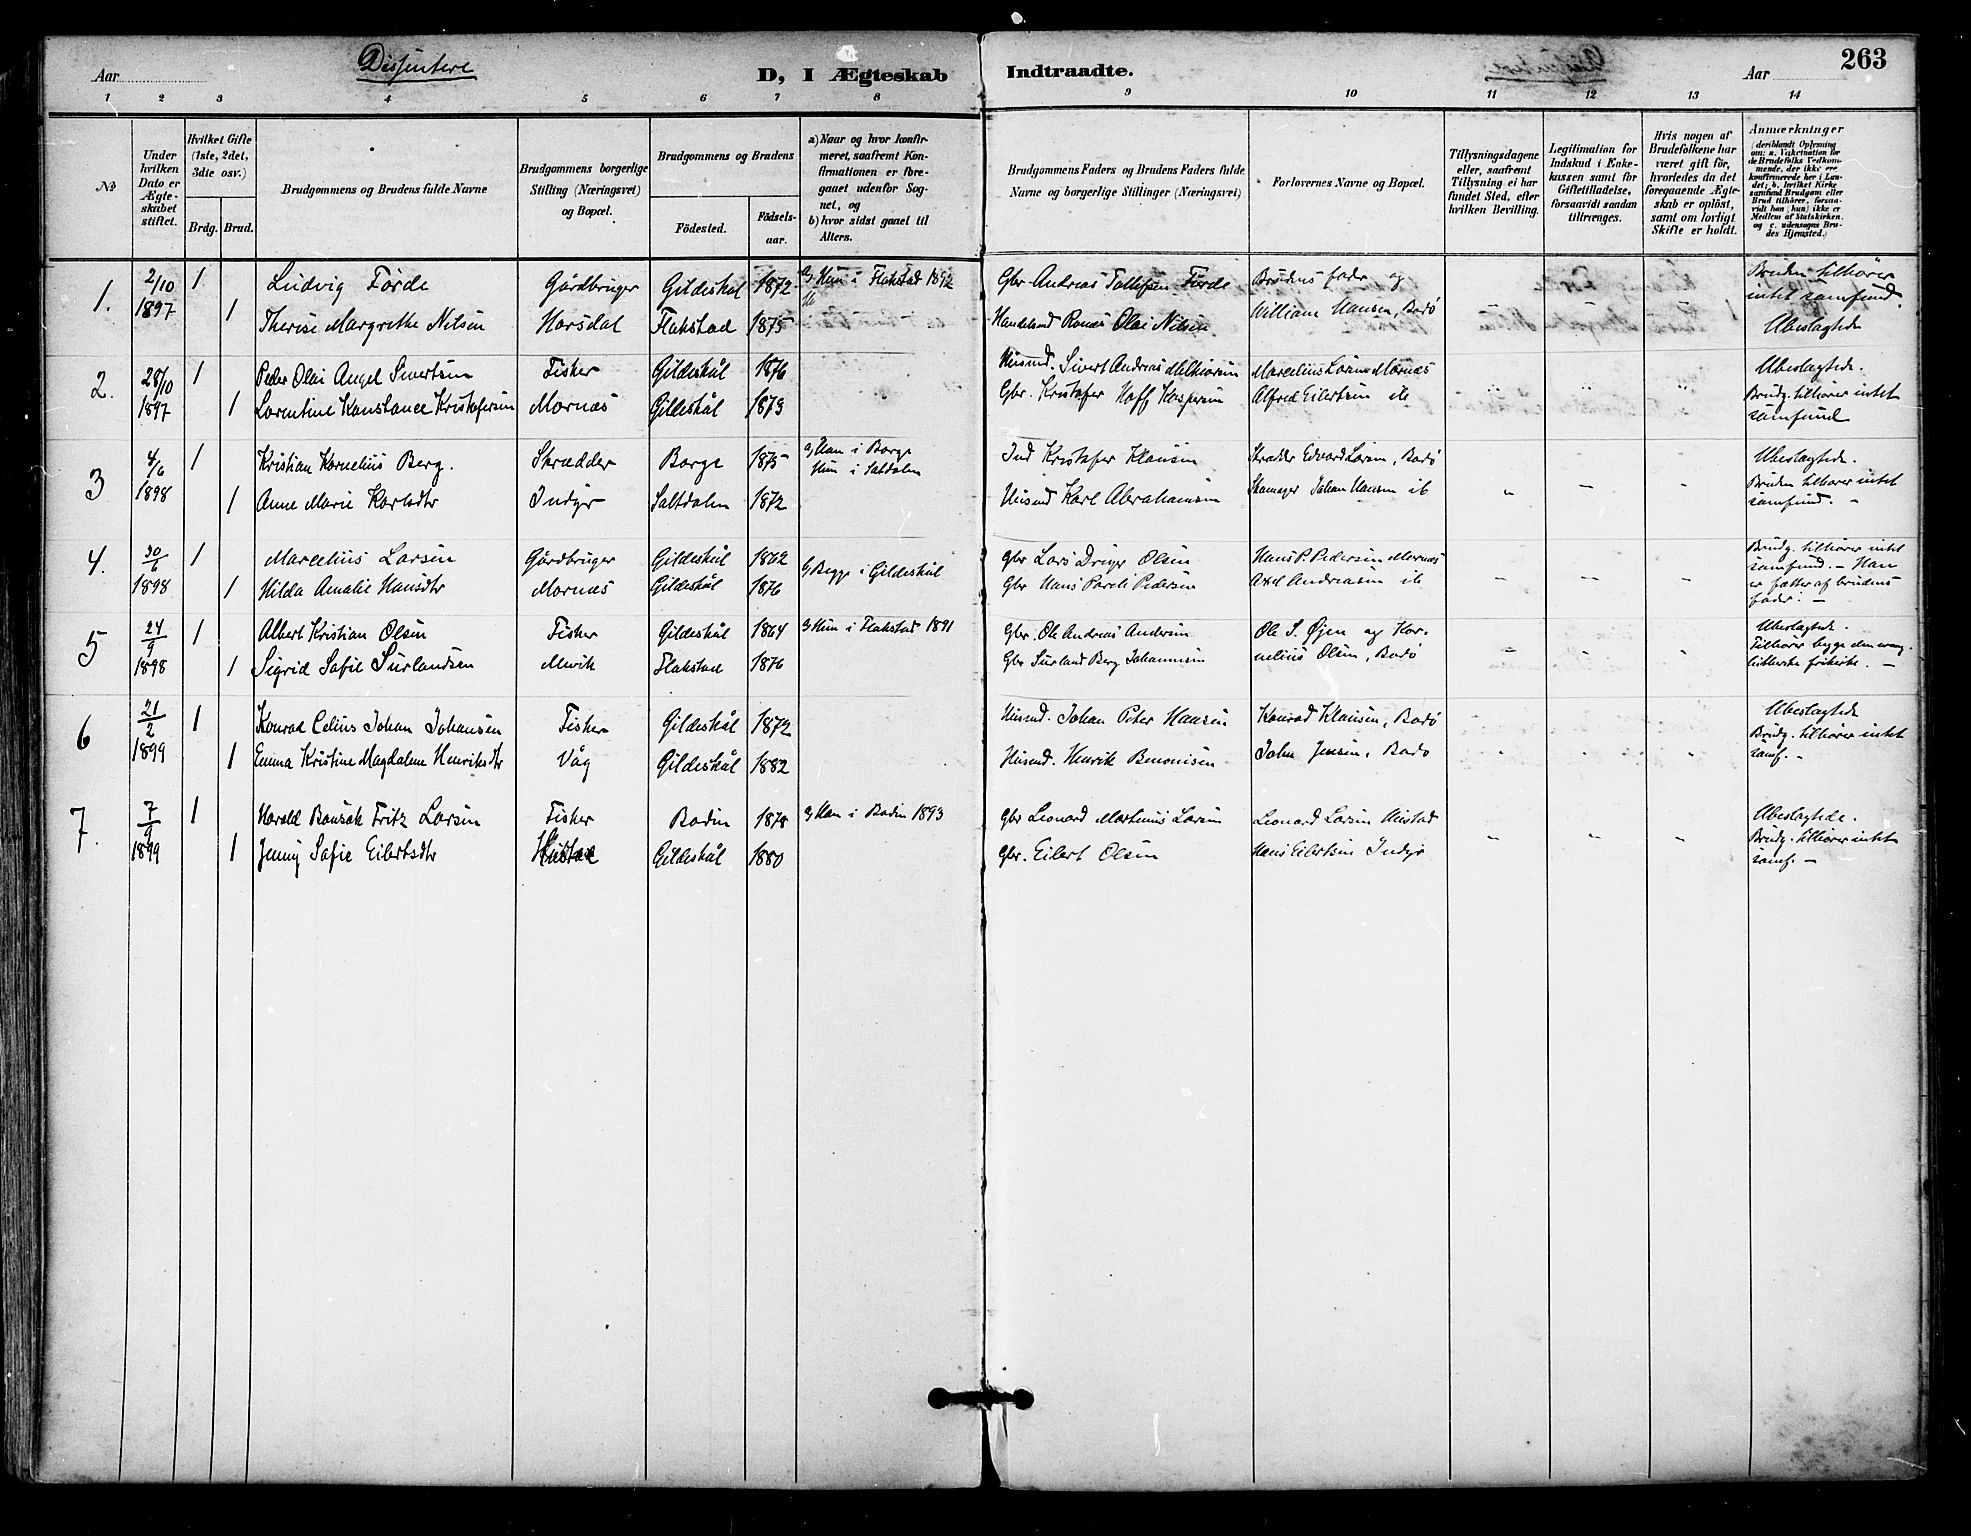 Dissentere
263
Aar
D, I Ægteskab
Indtraadte.
Aar
1 2 3 4 5 6 7 8 9 10 11 12 13 14
No
Under hvilken Dato er Ægteskabet stiftet.
Hvilket Gifte (1ste, 2det, 3die osv.)
Brdg. Brud.
Brudgommens og Brudens fulde Navne
Brudgommens borgerlige Stilling (Næringsvei) og Bopæl.
Brudgommens og Brudens
Födested.
Födselsaar.
a) Naar og hvor konfirmeret, saafremt Konfirmationen er foregaaet udenfor Sognet, og
b) hvor sidst gaaet til Alters.
Brudgommens Faders og Brudens Faders fulde Navne og borgerlige Stillinger (Næringsvei)
Forlovernes Navne og Bopæl.
Tillysningsdagene eller, saafremt Tillysning ei har fundet Sted, efter hvilken Bevilling.
Legitimation for Indskud i Enkekassen samt for Giftetilladelse, forsaavidt saadan tiltrænges.
Hvis nogen af Brudefolkene har været gift för, hvorledes da det foregaaende Ægteskab er oplöst, samt om lovligt Skifte er holdt.
Anmærkninger (deriblandt Oplysning om: a. Vakcination for de Brudefolks Vedkommende, der ikke ere konfirmerede her i Landet; b. hvilket Kirkesamfund Brudgom eller Brud tilhører, forsaavidt han (hun) ikke er Medlem af Statskirken og c. udensogns Brudes Hjemsted.)
1. 2/10 1 Ludvig Førde Gårdbruger Gildeskål 1872 a) Hun i Flakstad 1892 Gbr Andreas Tollefsen Førde Brudens fader og Bruden tilhører
1897 1 Therese Margrethe Nilsen Horsdal Flakstad 1875 Olai Nilsen William Hansen, Bodø intet samfund.
Ubeslagtede
2. 28/10 1 Peder Olai Angel Sivertsen Fisker Gildeskål 1876 Husmd. Sivert Andreas Melkiorsen Marcelius Larsen Mornæs Ubeslagtede.
1897 1 Lorentine Konstance Kristofersen Mornæs Gildeskål 1873 Gbr. Kristofer Hoff Kaspersen Alfred Eilertsen ib Brudg. tilhører intet
samfund
3 4/6 1 Kristian Kornelius Berg. Skrædder Borge 1875 a) Han i Borge Ind Kristofer Klausen Skrædder Edvard Larsen, Bodø Ubeslagtede.
Hun i Saltdalen
1898 1 Anne Marie Karlsdtr Indyr Saltdalen 1872 Husmd Karl Abrahamsen Skomager Johan Hansen ib Bruden tilhører intet
samfund. -
4. 30/6 1 Marcelius Larsen Gårdbruger Gildeskål 1862 a) Begge i Gildeskål Gbr Lars Dreyer Olsen Hans P. Pedersen Mornæs Brudg. tilhører intet
samfund. - Han
1898 1 Hilda Amalie Hansdtr Mornæs Gildeskål 1876 Gbr Hans Pareli Pedersen Axel Andreasen ib er fætter af brudens
fader. -
5 24/9 1 Albert Kristian Olsen Fisker Gildeskål 1864 a) Hun i Flakstad 1891 Gbr. Ole Andreas Andersen Ole S. Øjen og Kor- Ubeslagtede.
Tilhører begge den evang.
1898 1 Sigrid Sofie Surlandsen Mevik Flakstad 1876 Gbr Surland Berg Johannesen nelius Olsen, Bodø lutherske frikirke. -
6 21/2 1 Konrad Celius Johan Johansen Fisker Gildeskål 1872 Husmd. Johan Peter Hansen Konrad Klausen, Bodø Ubeslagtede
1899 1 Emma Kristine Magdalene Henriksdtr Våg Gildeskål 1882 Husmd. Henrik Benonisen John Jensen, Bodø Brudg. tilhører intet
samf. -
7. 7/9 1 Harald Bonsak Fritz Larsen Fisker Bodin 1878 a) Han i Bodin 1893 Gbr Leonard Martinus Larsen Leonard Larsen Ubeslagtede.
1899 1 Jenny Sofie Eilertsdtr Gildeskål 1880 Gbr. Eilert Olsen Hans Eilertsen Indyr Brudg. tilhører intet
samf. -